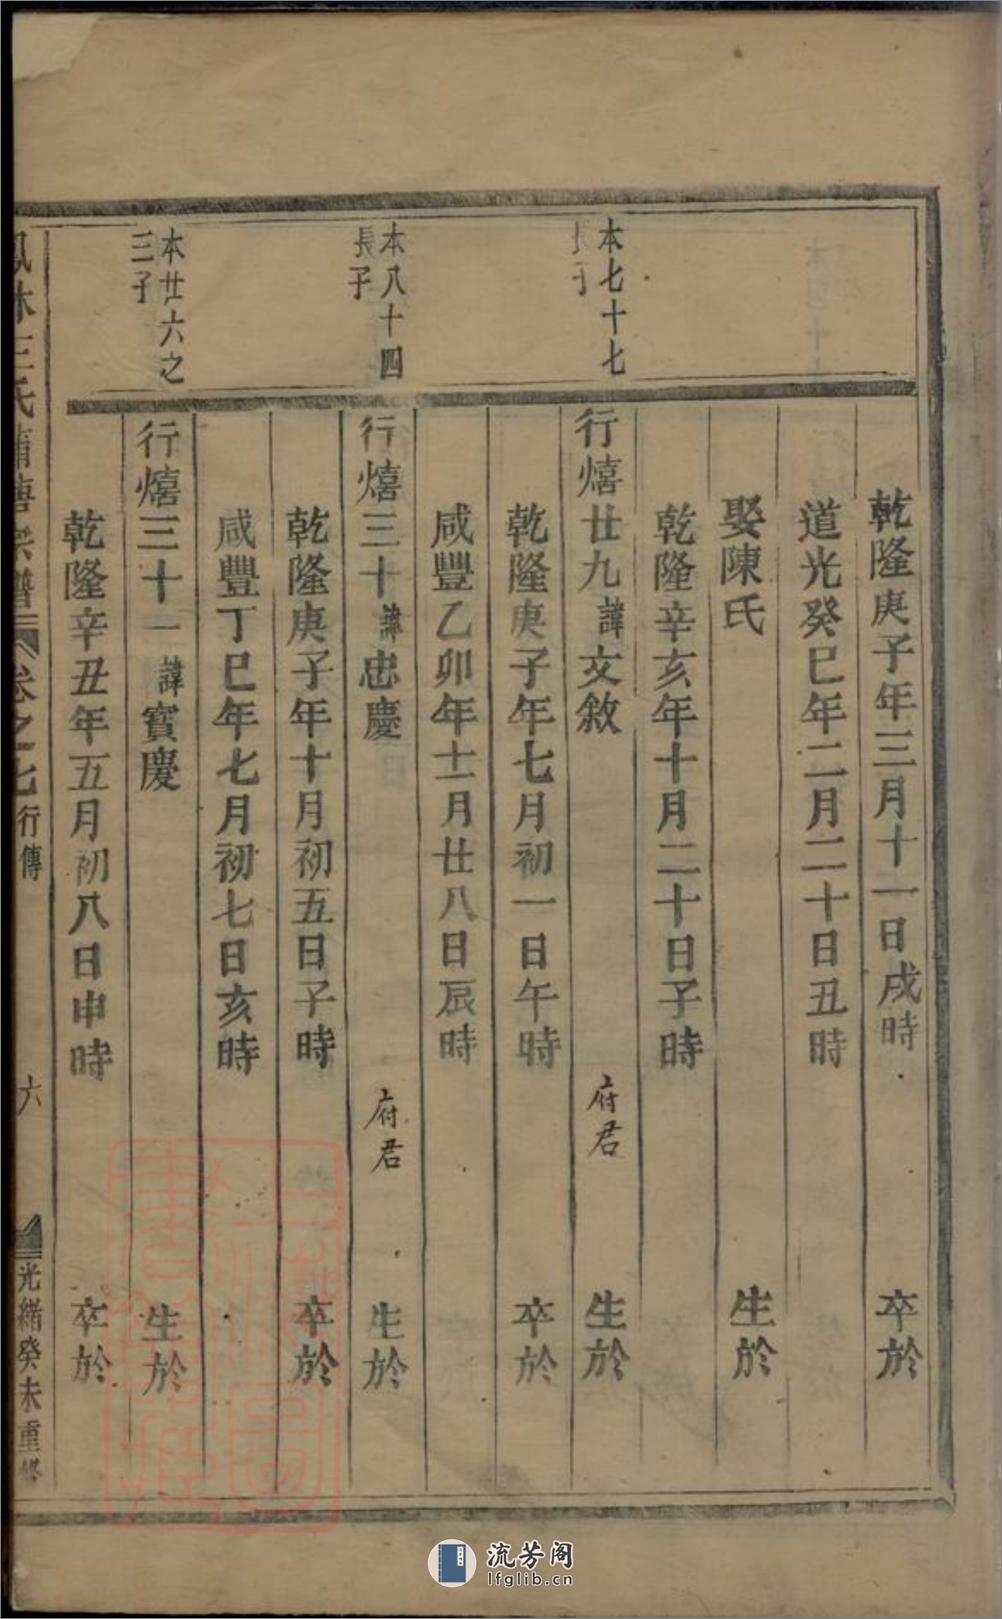 乾隆庚子年三月十一日戌時 卒於
道光癸巳年二月二十日丑時
娶陳氏 生於
乾隆辛亥年十月二十日子時
本七十七
長子
行熺廿九 諱 文敘 府君 生於
乾隆庚子年七月初一日午時 卒於
咸豐乙卯年十一月廿八日辰時
本八十四
長子
行熺三十 諱 忠慶 府君 生於
乾隆庚子年十月初五日子時 卒於
咸豐丁巳年七月初七日亥時
本廿六之
三子
行熺三十一 諱 寶慶 生於
乾隆辛丑年五月初八日申時 卒於
鳳林王氏蒲塘宗譜 卷之七 行傳 六 光緒癸未重修
上海圖書館藏
流芳阁
lfglib.cn